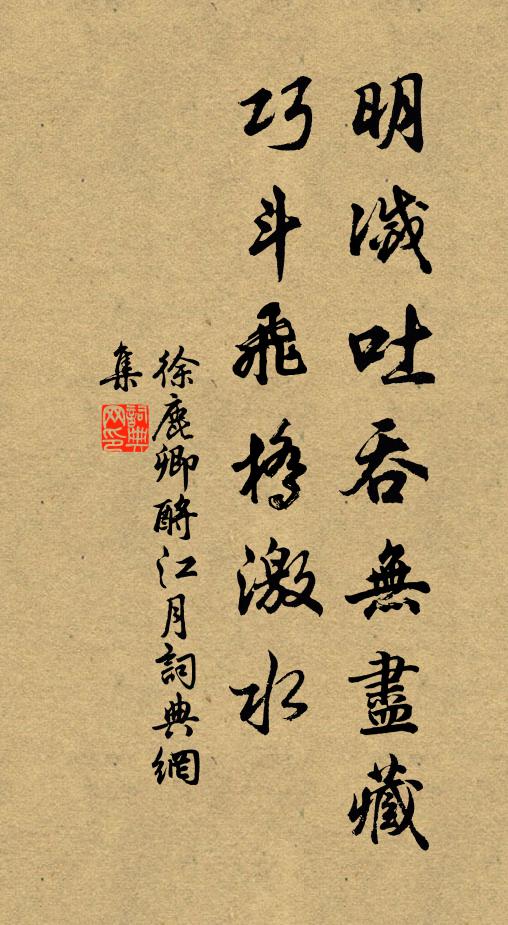 明滅吐吞無盡藏
巧斗飛橋激水
徐鹿卿酹江月詞典網
集
詞典
网印